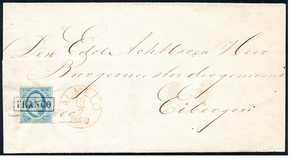 Den Edel Achtbaren Heer
Burgemeester der gemeente
Eibergen
FRANCO
ALMELO